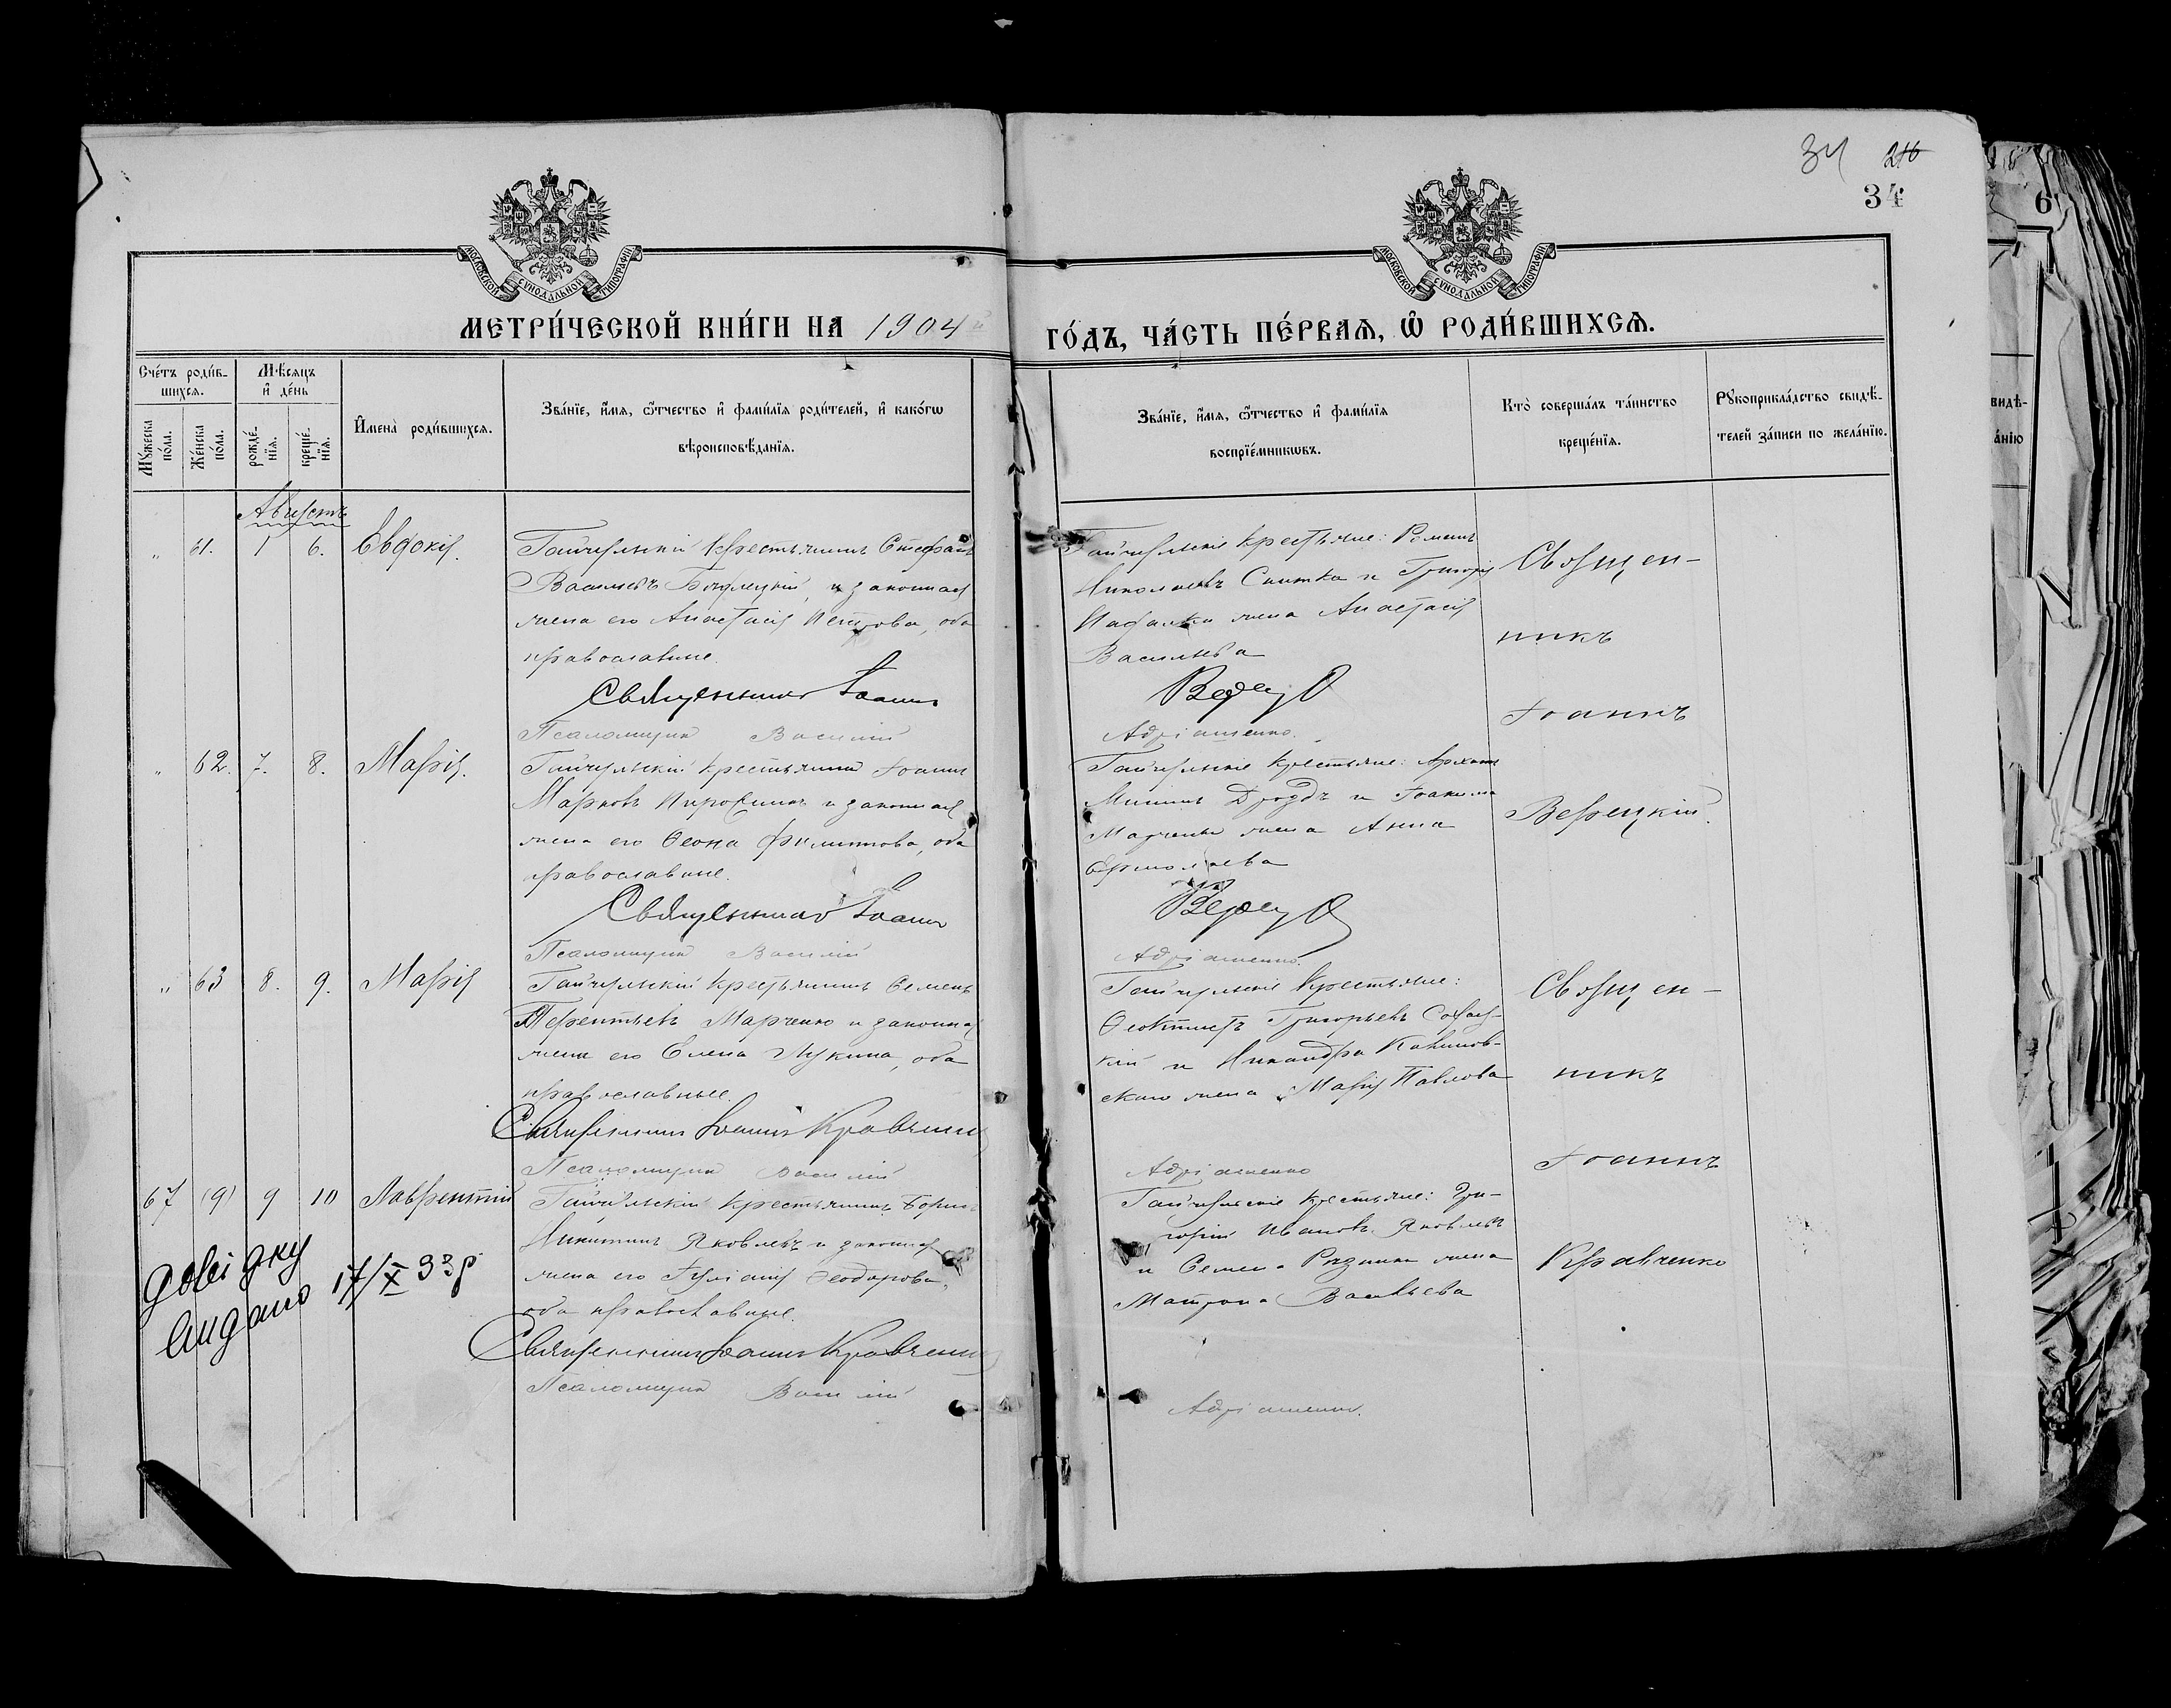 34 216
34
МОСКОВСКОЙ СѴНОДАЛЬНОЙ ТИПОГРАФІИ
МОСКОВСКОЙ СѴНОДАЛЬНОЙ ТИПОГРАФІИ
МЕТРИ́ЧЕСКОЙ КНИ́ГИ НА 1904 й
ГО́ДЪ, ЧА́СТЬ ПЕ́РВАЯ, Ѽ РОДИ́ВШИХСЯ.
Сче́тъ роди́в-
шихся.
Мѣ́сяцъ
и҆ де́нь
Му́жеска
по́ла.
Же́нска
по́ла.
рожде́-
нїя.
креще́-
нїя.
И҆мена̀ роди́вшихся.
Зва́нїе, и҆́мя, ѻ҆́тчество и҆ фами́лїя роди́телей, и҆ како́гѡ
вѣроисповѣ́данїя.
Зва́нїе, и҆́мя, ѻ҆́тчество и҆ фами́лїя
воспрїе́мникѡвъ.
Кто̀ соверша́лъ та́инство
креще́нїя.
Рꙋкоприкла́дство свидѣ́-
телей за́писи по жела́нїю.
Августъ
„ 61. 1 6. Евдокія.
Гайчульскій крестьянинъ Стефанъ
Васильевъ и законная
жена его Анастасія Петрова, оба
православные.
Священникъ Іоаннъ
Псаломщикъ Василій
Гайчульскіе крестьяне: Романъ
Николаевъ Скитка и Григорія
жена Анастасія
Васильева
Верец
Адріашенко.
Священ-
никъ
Іоаннъ
Верецкій.
„ 62. 7. 8. Марія.
Гайчульскій крестьянинъ Іоаннъ
Марковъ и законная
жена его Ѳеона Филиппова, оба
православные.
Священникъ Іоаннъ
Псаломщикъ Василій
Гайчульскіе крестьяне:
Мининъ Дроздъ и Іоакима
Марченка жена Анна
Ермолаева
Верец
Адріашенко.
„ 63 8. 9. Марія
Гайчульскій крестьянинъ Семенъ
Терентьевъ Марченко и законная
жена его Елена Лукина, оба
православные.
Священникъ Іоаннъ Кравченко
Псаломщикъ Василій
Гайчульскіе крестьяне:
Ѳеоктистъ Григорьевъ
кій и Никандра
скаго жена Марія Павлова
Адріашенко
Священ-
никъ
Іоаннъ
Кравченко
67 (9) 9 10 Лаврентій
Гайчульскій крестьянинъ Борисъ
Никитинъ Яковлевъ и законная
жена его Іуліанія Ѳеодорова,
оба православные.
Священникъ Іоаннъ Кравченко
Псаломщикъ Василій
Гайчульскіе крестьяне: Гри-
горій Ивановъ Яковлевъ
и Семена жена
Матрона Васильева
Адріашенко.
довідку
видано 17/X 33 р
6
видѣ́-
а́нїю